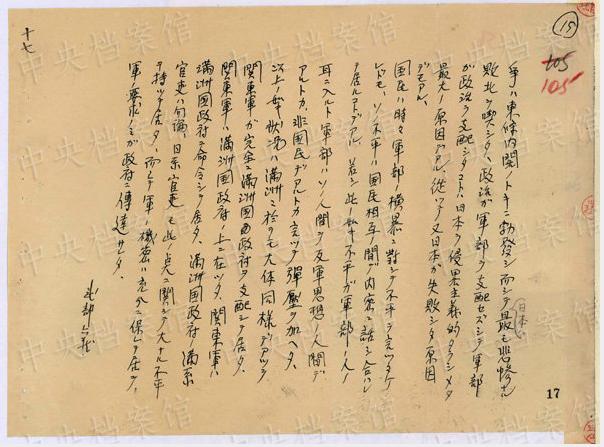 15
105
105
争ハ東條内閣ノトキニ勃発シ而シテ日本ハ最モ悲惨ナル
敗北ヲ喫シタ、政治ガ軍部ヲ支配セズシテ軍部
ガ政治ヲ支配シタコトハ日本ヲ侵略主義的タラシメタ
最大ノ原因デアル、従ツテ又日本ガ失敗シタ原因
デモアル、
国民ハ時々軍部ノ横暴ニ対シテ不平ヲ言ツタケ
レドモ、ソノ不平ハ国民相互ノ間デ内密ニ話シ合ハレ
テ居ルマデデアル、若シ此ノ如キ不平ガ軍部ノ人ノ
耳ニ入ルト軍部ハソノ人間ヲ反軍思想ノ人間デ
アルトカ、非国民デアルトカ言ツテ弾圧ヲ加ヘタ、
以上ノ如キ状況ハ満洲ニ於テモ大体同様デアツタ
関東軍ガ完全ニ満洲国政府ヲ支配シテ居タ、
関東軍ハ満洲国政府ノ上ニ在ツタ、関東軍ハ
満洲国政府ヲ命令シテ居タ、満洲国政府ノ満系
官吏ハ勿論、日系官吏モ此ノ点ニ関シテ大ナル不平
ヲ持ツテ居タ、而シテ軍ノ機密ハ充分ニ保レテ居タ、
軍ノ要求ノミガ政府ニ傳達サレタ、
武部六蔵
十七
17
中央档案馆